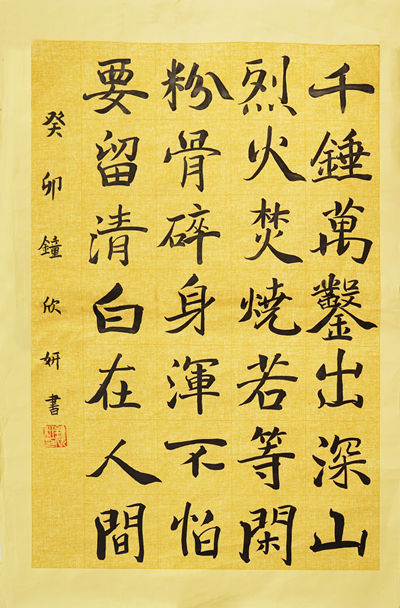 千錘萬鑿出深山
烈火焚燒若等閑
粉骨碎身渾不怕
要留清白在人間
癸卯鐘欣妍書